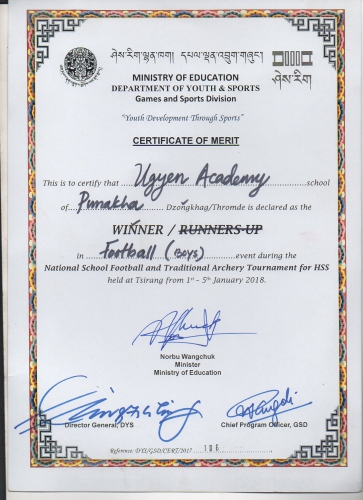 ཤེས་རིག་ལྷན་ཁག། དཔལ་ལྡན་འབྲུག་གཞུང་།
ཤེས་རིག
MINISTRY OF EDUCATION
DEPARTMENT OF YOUTH & SPORTS
Games and Sports Division
"Youth Development Through Sports"
CERTIFICATE OF MERIT
This is to certify that Ugyen Academy school
of Punakha Dzongkhag/Thromde is declared as the
WINNER / RUNNERS-UP
in Football (Boys) event during the
National School Football and Traditional Archery Tournament for HSS
held at Tsirang from 1st - 5th January 2018.
Norbu Wangchuk
Minister
Ministry of Education
Director General, DYS Chief Program Officer, GSD
Reference: DYS/GSD/CERT/2017 106